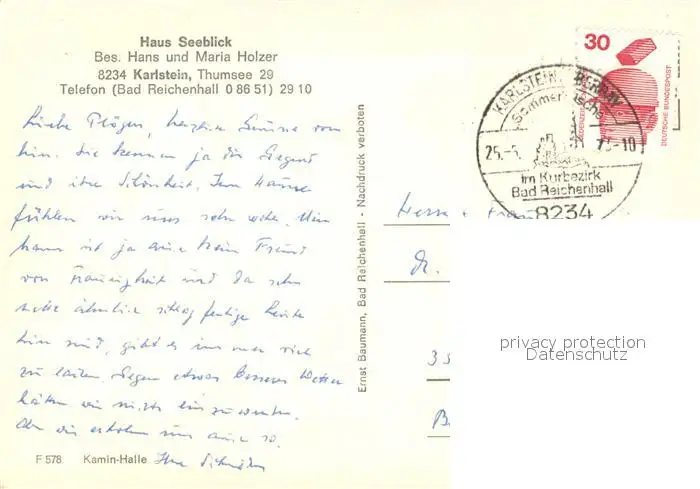 Haus Seeblick
Bes. Hans und Maria Holzer
8234 Karlstein, Thumsee 29
Telefon (Bad Reichenhall 0 86 51) 29 10
Liebe herzliche Grüsse von
hier. Sie kennen ja die Gegend
und ihre Schönheit. Im Hause
fühlen wir uns sehr wohl. Mein
Mann ist ja auch kein Freund
von und da sehr
nette ähnlich Leute
hier sind, gibt es immer viel
zu lachen. Gegen etwas besseres Wetter
hätten wir nichts einzuwenden.
Aber wir erholen uns auch so.
Ihre
F 578 Kamin-Halle
Ernst Baumann, Bad Reichenhall - Nachdruck verboten
30
DEUTSCHE BUNDESPOST
KARLSTEIN
Sommerfrische
25.-5. 75-10
im Kurbezirk
Bad Reichenhall
8234
Herrn Frau
Dr.
privacy protection
Datenschutz